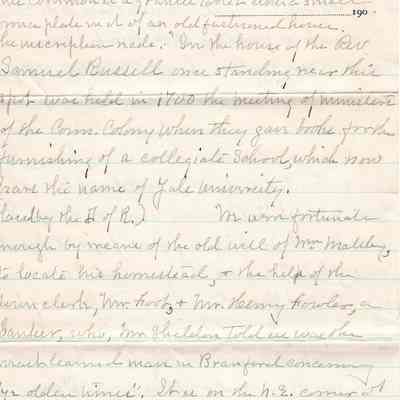 the common is a granite tablet with a small
190
bronze plate on it of an old fashioned house.
The inscription reads: "In the house of the Rev.
Samuel Russell once standing near this
spot was held in 1700 the meeting of ministers
of the Conn. Colony when they gave books for the
furnishing of a collegiate School, which now
bears the name of Yale University.
Placed by the D of R.) We were fortunate
enough by means of the old will of Mr.
to locate his homestead, & the help of the
town clerk, Mr. Foote, & Mr. Henry Fowler, a
banker, who, Mr. Sheldon told us was the
most learned man in Branford concerning
"ye olden times". It is on the N.E. corner of